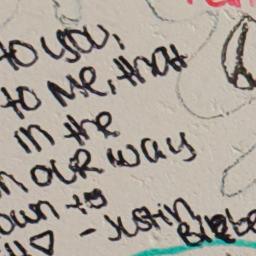 to you,
to me, that
in the
n our way
own to
- Justin Bieber